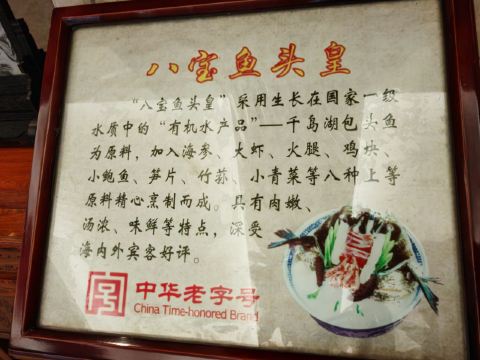 八宝鱼头皇
“八宝鱼头皇”采用生长在国家一级
水质中的“有机水产品”—千岛湖包头鱼
为原料，加入海参、大虾、火腿、鸡块、
小鲍鱼、笋片、竹荪、小青菜等八种上等
原料精心烹制而成。具有肉嫩、
汤浓、味鲜等特点，深受
海内外宾客好评。
中华老字号
China Time-honored Brand